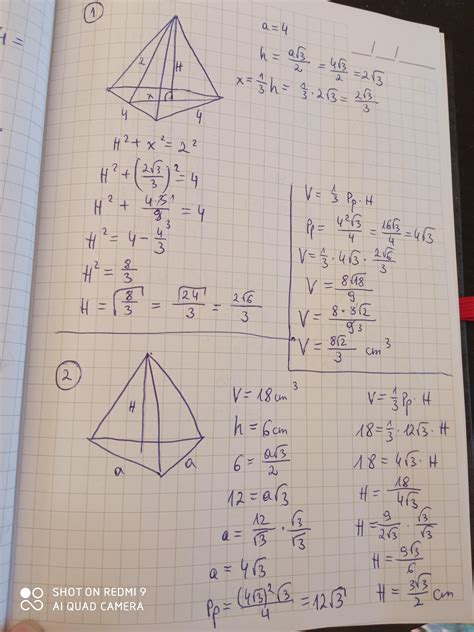 1
a = 4
h = a√3/2 = 4√3/2 = 2√3
x = 1/3 h = 1/3 · 2√3 = 2√3/3
2
H
x
4
4
H² + x² = 2²
H² + (2√3/3)² = 4
H² + 4·3¹/9₃ = 4
H² = 4 - 4/3
H² = 8/3
H = √8/3 = √24/3 = 2√6/3
V = 1/3 Pp · H
Pp = 4²√3/4 = 16√3/4 = 4√3
V = 1/3 · 4√3 · 2√6/3
V = 8√18/9
V = 8·3√2/9₃
V = 8√2/3 cm³
2
H
a
a
V = 18cm³
h = 6cm
6 = a√3/2
12 = a√3
a = 12/√3 · √3/√3
a = 4√3
Pp = (4√3)²√3/4 = 12√3
V = 1/3 Pp · H
18 = 1/3 · 12√3 · H
18 = 4√3 · H
H = 18/4√3
H = 9/2√3 · √3/√3
H = 9√3/6
H = 3√3/2 cm
SHOT ON REDMI 9
AI QUAD CAMERA